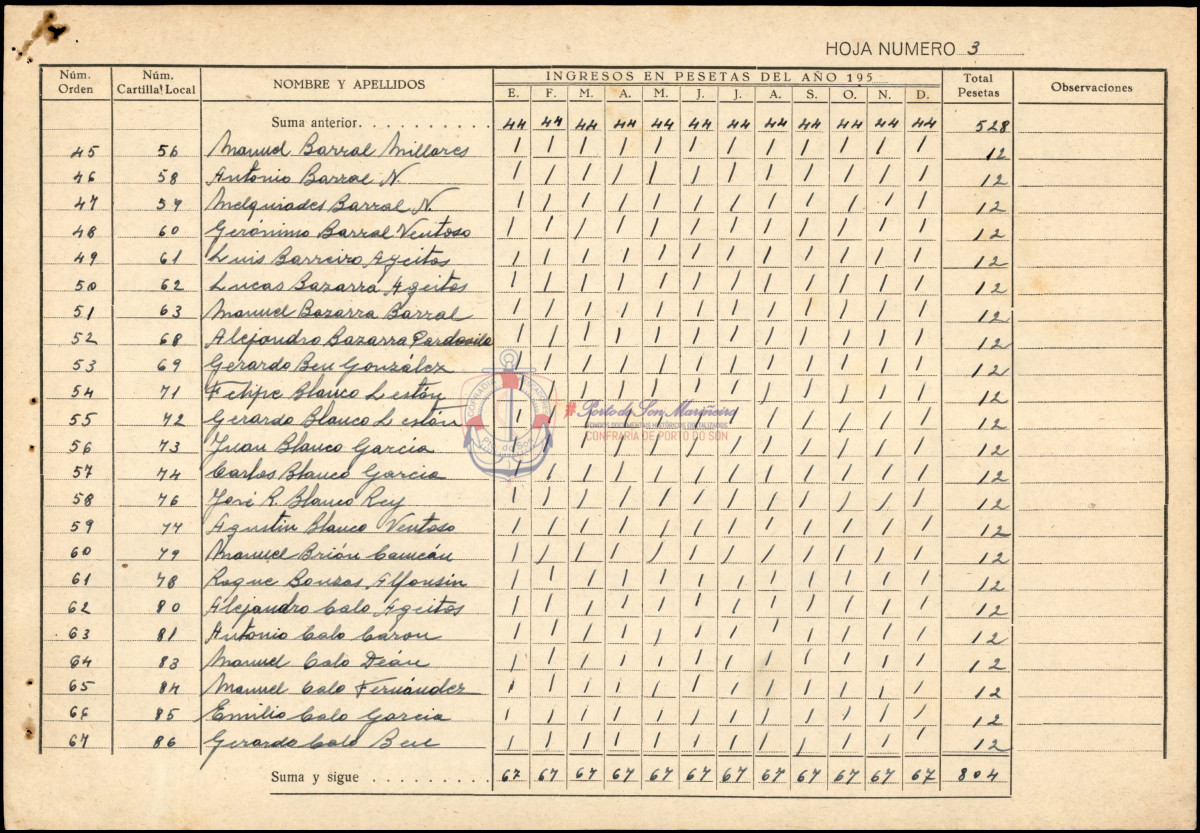 HOJA NUMERO 3
Núm. Orden Núm. Cartilla Local NOMBRE Y APELLIDOS INGRESOS EN PESETAS DEL AÑO 195 Total Pesetas Observaciones
E. F. M. A. M. J. J. A. S. O. N. D.
Suma anterior 44 44 44 44 44 44 44 44 44 44 44 44 528
45 56 Manuel Barral Millares 1 1 1 1 1 1 1 1 1 1 1 1 12
46 58 Antonio Barral N. 1 1 1 1 1 1 1 1 1 1 1 1 12
47 59 Melquiades Barral N. 1 1 1 1 1 1 1 1 1 1 1 1 12
48 60 Gerónimo Barral Ventoso 1 1 1 1 1 1 1 1 1 1 1 1 12
49 61 Luis Barreiro Ageitos 1 1 1 1 1 1 1 1 1 1 1 1 12
50 62 Lucas Bazarra Ageitos 1 1 1 1 1 1 1 1 1 1 1 1 12
51 63 Manuel Bazarra Barral 1 1 1 1 1 1 1 1 1 1 1 1 12
52 68 Alejandro Bazarra 1 1 1 1 1 1 1 1 1 1 1 1 12
53 69 Gerardo Ben González 1 1 1 1 1 1 1 1 1 1 1 1 12
54 71 Felipe Blanco Lestón 1 1 1 1 1 1 1 1 1 1 1 1 12
55 72 Gerardo Blanco Lestón 1 1 1 1 1 1 1 1 1 1 1 1 12
56 73 Juan Blanco García 1 1 1 1 1 1 1 1 1 1 1 1 12
57 74 Carlos Blanco García 1 1 1 1 1 1 1 1 1 1 1 1 12
58 76 José R. Blanco Rey 1 1 1 1 1 1 1 1 1 1 1 1 12
59 77 Agustin Blanco Ventoso 1 1 1 1 1 1 1 1 1 1 1 1 12
60 79 Manuel Brión Caneán 1 1 1 1 1 1 1 1 1 1 1 1 12
61 78 Roque Bouzas Alfonsin 1 1 1 1 1 1 1 1 1 1 1 1 12
62 80 Alejandro Calo Ageitos 1 1 1 1 1 1 1 1 1 1 1 1 12
63 81 Antonio Calo Carou 1 1 1 1 1 1 1 1 1 1 1 1 12
64 83 Manuel Calo Deán 1 1 1 1 1 1 1 1 1 1 1 1 12
65 84 Manuel Calo Fernández 1 1 1 1 1 1 1 1 1 1 1 1 12
66 85 Emilio Calo García 1 1 1 1 1 1 1 1 1 1 1 1 12
67 86 Gerardo Calo Ben 1 1 1 1 1 1 1 1 1 1 1 1 12
Suma y sigue 67 67 67 67 67 67 67 67 67 67 67 67 804
#Porto do Son Mariñeiro
FONDOS DOCUMENTAIS HISTÓRICOS DIGITALIZADOS
CONFRARIA DE PORTO DO SON